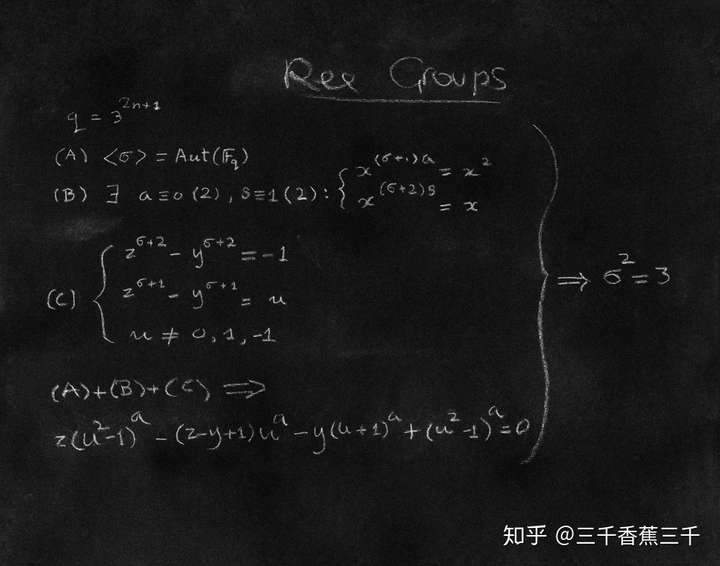 Ree Groups
q = 3^{2n+1}
(A) <σ> = Aut(F_q)
(B) ∃ a≡0(2), s≡1(2): { x^{(σ+1)a} = x^2
x^{(σ+2)s} = x
(C) { z^{σ+2} - y^{σ+2} = -1
z^{σ+1} - y^{σ+1} = u
u ≠ 0, 1, -1
(A)+(B)+(C) ⟹
z(u^2-1)^a - (z-y+1)u^a - y(u+1)^a + (u^2-1)^a = 0
} ⟹ σ^2 = 3
知乎 @三千香蕉三千